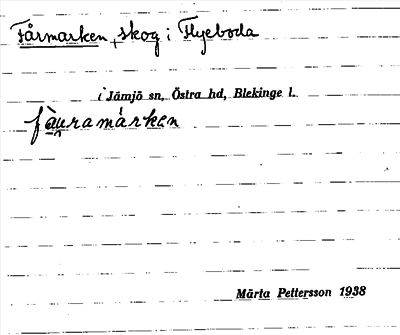 Fårmarken, skog i Flyeboda
i Jämjö sn, Östra hd, Blekinge l.
fàu̯ramárken
Märta Pettersson 1938